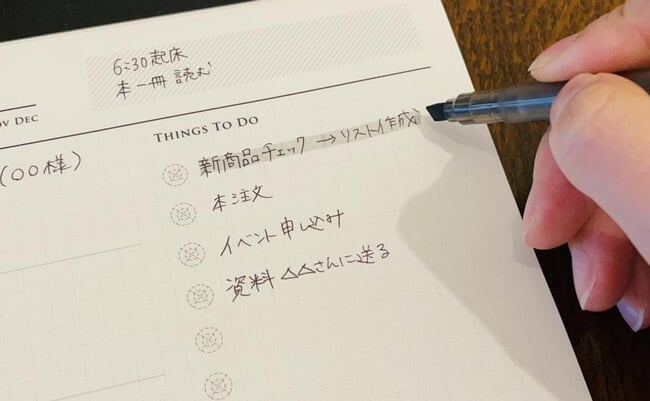 6:30起床
本一冊 読む
OV DEC
THINGS TO DO
(〇〇様)
新商品チェック→リスト作成
本注文
イベント申し込み
資料 △△さんに送る